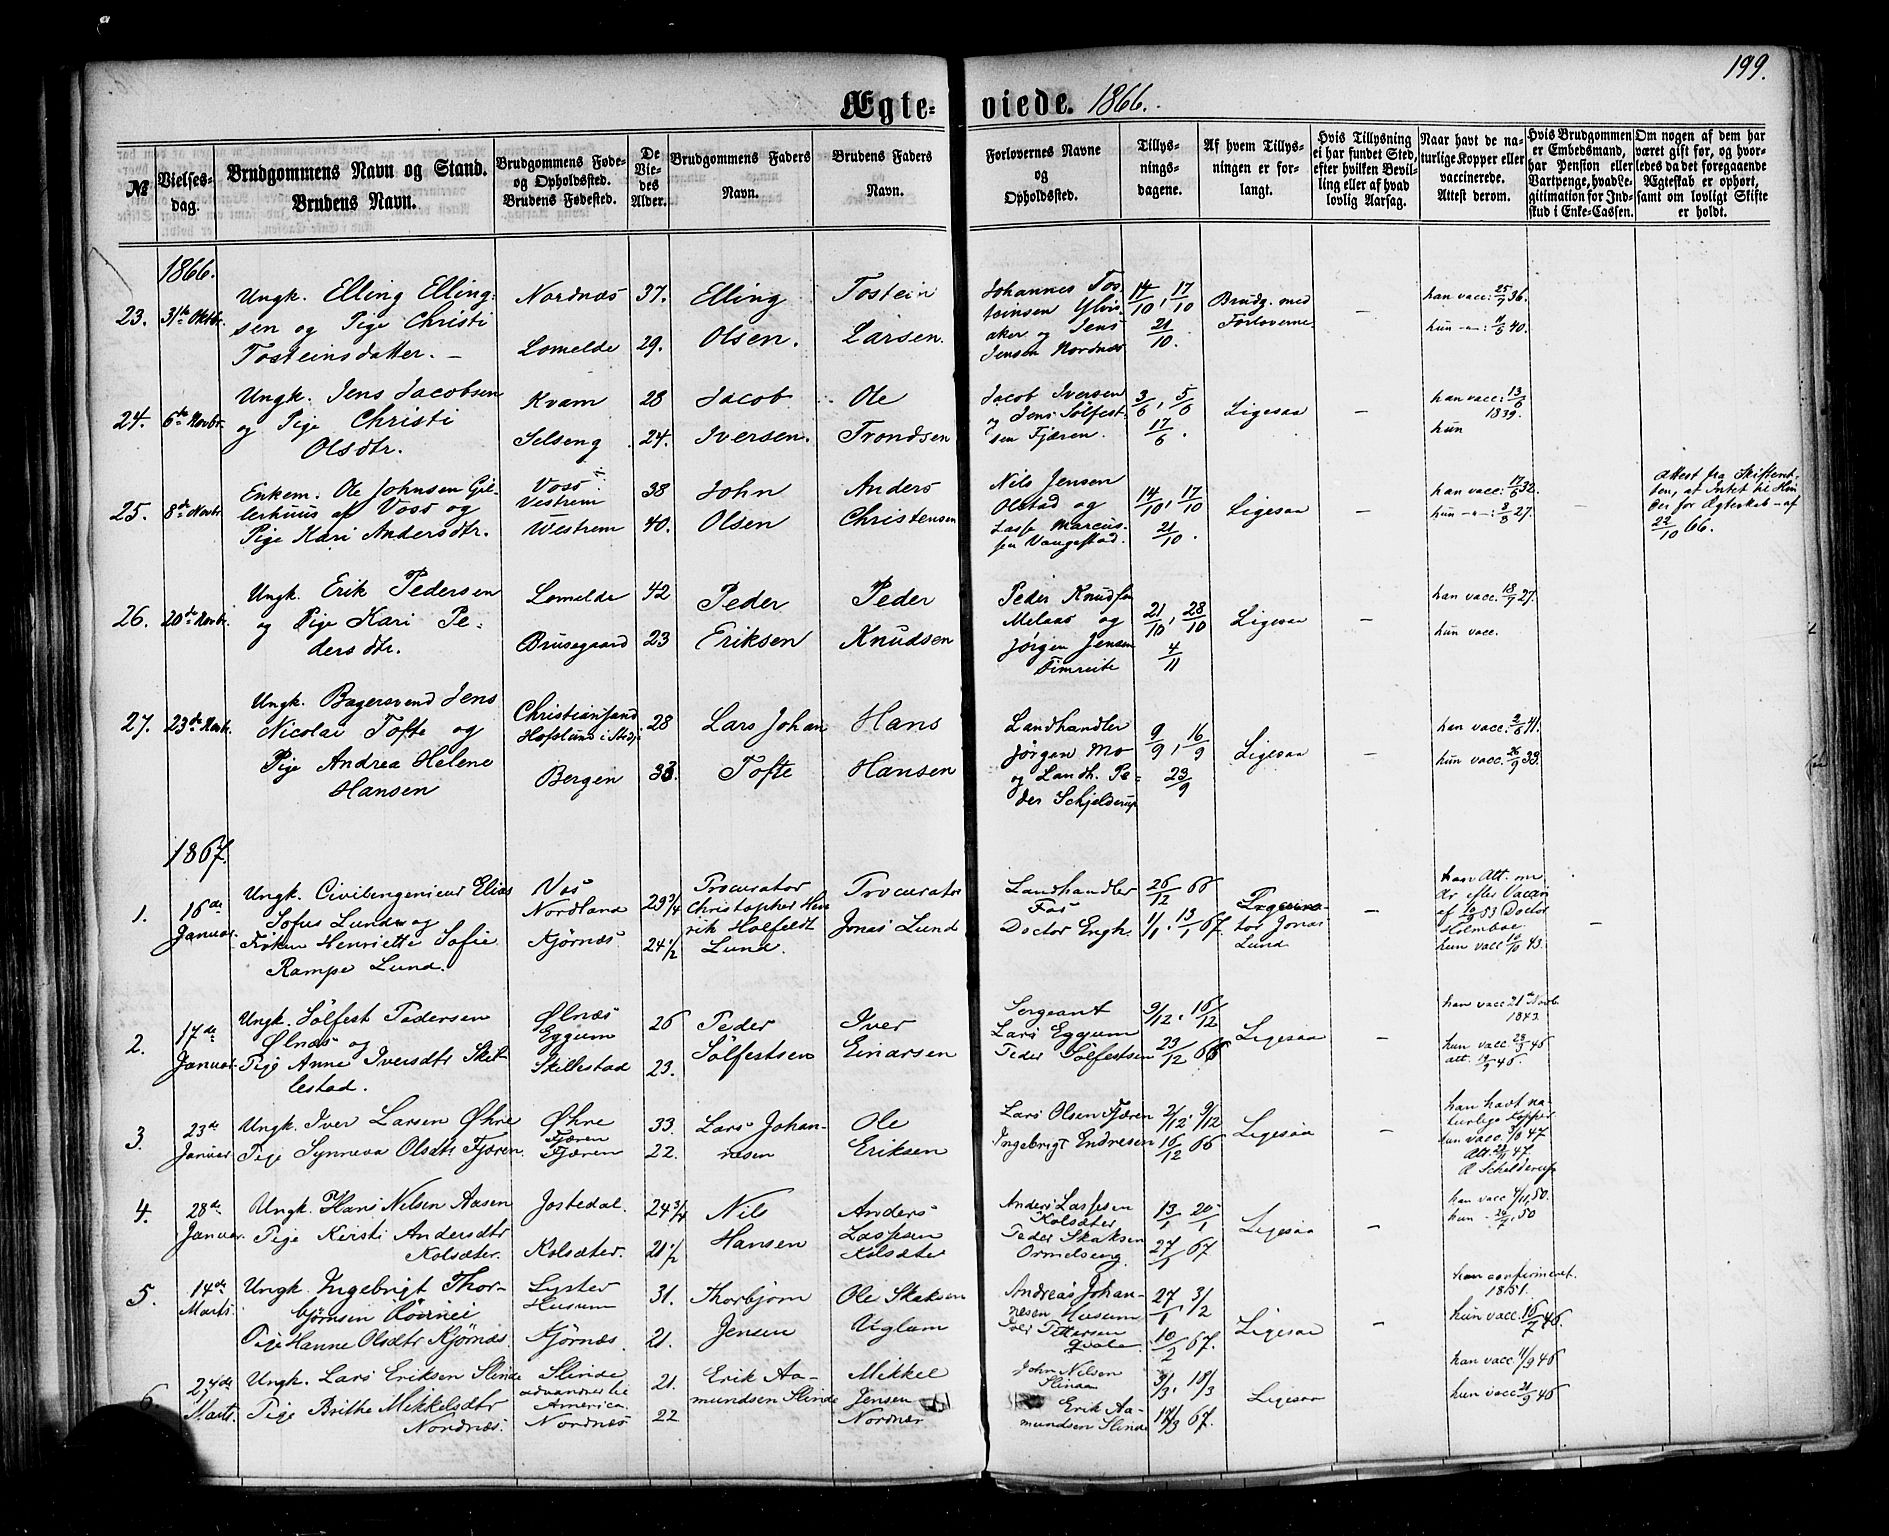 199.
Ægteviede. 1866.
№
Vielses-
dag.
Brudgommens Navn og Stand.
Brudens Navn.
Brudgommens Føde-
og Opholdssted.
Brudens Fødested.
De
Vie-
des
Alder.
Brudgommens Faders
Navn.
Brudens Faders
Navn.
Forlovernes Navne
og
Opholdssted.
Tillys-
nings-
dagene.
Af hvem Tillys-
ningen er for-
langt.
Hvis Tillysning
ei har fundet Sted,
efter hvilken Bevil-
ling eller af hvad
lovlig Aarsag.
Naar havt de na-
turlige Kopper eller
vaccinerede.
Attest derom.
Hvis Brudgommen
er Embedsmand,
har Pension eller
Vartpenge, hvad Le-
gitimation for Ind-
skud i Enke-Cassen.
Om nogen af dem har
været gift før, og hvor-
ledes da det foregaaende
Ægteskab er ophørt,
samt om lovligt Skifte
er holdt.
1866.
23.
31te Oktbr.
Ungk. Elling Elling-
sen og Pige Christi
Tosteinsdatter. —
Nordnæs
Lomelde
37.
29.
Elling
Olsen.
Tostein
Larsen.
Johannes Tos-
teinsen Ylvis-
aker og Jens
Jensen Nordnæs
14/10, 17/10
21/10.
Brudg. med
Forloverne
—
han vacc: 25/9 36.
hun —"—: 11/6 40.
24.
6te Novbr.
Ungk. Jens Jacobsen
og Pige Christi
Olsdtr.
Kvam
Selseng
28
24.
Jacob
Iversen.
Ole
Trondsen
Jacob Iversen
og Jens Sølfest-
sen Fjæren.
3/6, 5/6
17/6.
Ligesaa
—
han vacc: 13/6
1839.
hun
25.
8de Novbr.
Enkem. Ole Johnsen Gil-
lerhuus af Voss og
Pige Kari Andersdtr.
Voss
Vestrem
Westrem
38
40.
John
Olsen
Anders
Christensen
Nils Jensen
Olstad og
Lasse Marcus-
sen Vangestad.
14/10, 17/10
21/10.
Ligesaa
—
han vacc: 17/6 32.
hun —"—: 8/8 27.
Attest fra Skifteret-
ten, at Intet til Hin-
der for Ægteskab — af
22/10 66.
26.
20de Novbr.
Ungk. Erik Pedersen
og Pige Kari Pe-
dersdtr.
Lomelde
Brusegaard
42
23
Peder
Eriksen
Peder
Knudsen
Peder Knudsen
Melaas og
Jørgen Jensen
Timreite
21/10, 28/10
4/11
Ligesaa
—
han vacc. 18/9 27.
hun vacc.
27.
23de Novbr.
Ungk. Bagersvend Jens
Nicolai Tofte og
Pige Andrea Helene
Hansen
Christiansand
Hofslund i
Bergen
28
33.
Lars Johan
Tofte
Hans
Hansen
Landhandler
Jørgen Mo
og Landh. Pe-
der Schjelderup
9/9, 16/9
23/9
Ligesaa
—
han vacc. 2/6 41.
hun vacc. 26/9 33.
1867.
1.
16de
Januar.
Ungk. Civilingenieur Elias
Sofus Lund og
Frøken Henriette Sofie
Rampe Lund.
Næs
Nordland
Kjørnæs
29 3/4
24 1/2
Procurator
Christopher Hen-
rik Holfeldt
Lund.
Procurator
Jonas Lund
Landhandler
Fos
Doctor Engh.
26/12 66
1/1. 13/1 67.
Jonas
Lund
—
han Att. om
af 10/9 53 Doctor
Holmboe.
hun vacc 10/10 43.
2.
17de
Januar.
Ungk. Sølfest Pedersen
Ølnæs og
Pige Anne Iversdtr Skil-
lestad.
Ølnæs
Eggum
Skillestad
26
23.
Peder
Sølfestsen
Iver
Einarsen
Sergeant
Lars Eggum
Peder Sølfestsen
9/12. 16/12
23/12 66
Ligesaa
—
han vacc 21de Novb.
1843.
hun vacc 23/9 46
att. 19/9 46.
3.
23de
Januar
Ungk. Iver Larsen Øhre
Pige Synneva Olsdtr Fjæren.
Øhre
Fjæren
Fjæren
33.
22.
Lars Johan-
nesen
Ole
Eriksen
Lars Olsen Fjæren
Ingebrigt Endresen
2/12. 9/12
16/12 66
Ligesaa
—
han havt na-
turlige Kopper
hun vacc. 3/8 47
Att. 23/11 47.
Schelderup
4.
28de
Januar.
Ungk. Hans Nilsen Aasen
Pige Kirsti Andersdtr
Kolsæter.
Jostedal.
Kolsæter.
24 3/4
21 1/2
Nils
Hansen
Anders
Lassen
Kolsæter
Anders Lassesen
Kolsæter
Peder Skaksen
Ormelseng
13/1 20/1
27/1 67
Ligesaa
—
han vacc 4/11 50.
hun " 26/7, 50
5.
14de
Marts.
Ungk. Ingebrigt Thor-
bjørnsen
Pige Hanne Olsdtr Kjørnæs.
Lyster
Husum
Kjørnæs.
31.
21.
Thorbjørn
Jensen
Ole Skaksen
Uglum
Andreas Johan-
nesen Husum
Iver Pettersen
Qvale
27/1, 3/2
10/2 67.
Ligesaa
—
han confirmeret.
1851.
hun vacc. 16/7 46.
6
24de
Marts.
Ungk. Lars Eriksen Slinde
Pige Brithe Mikkelsdtr
Nordnæs.
Slinde
udvandret til
America.
Nordnæs
21.
22
Erik Aa-
mundsen Slinde
Mikkel
Jensen
Nordnæs
John Nilsen
Slinde
Erik Aa-
mundsen Slinde
3/3, 10/3
17/3 67.
Ligesaa
han vacc 11/9 46
hun vacc 21/9 46